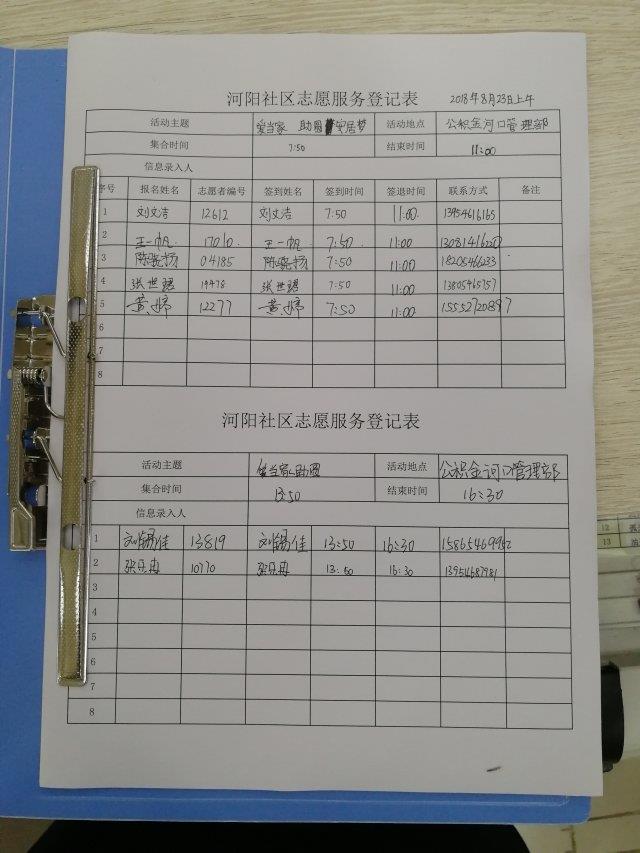 河阳社区志愿服务登记表 2018年8月23日上午
活动主题 爱当家 助圆 安居梦 活动地点 公积金河口管理部
集合时间 7:50 结束时间 11:00
信息录入人
序号 报名姓名 志愿者编号 签到姓名 签到时间 签退时间 联系方式 备注
1 刘文浩 12612 刘文浩 7:50 11:00 13954616165
2 王一帆 17010 王一帆 7:50 11:00
3 陈晓杨 04185 陈晓杨 7:50 11:00 18205466233
4 张世珺 19478 张世珺 7:50 11:00 13805465757
5 黄婷 12277 黄婷 7:50 11:00 15552720897
6
7
8
河阳社区志愿服务登记表
活动主题 爱当家 助圆 活动地点 公积金河口管理部
集合时间 13:50 结束时间 16:30
信息录入人
1 佳 13819 佳 13:50 16:30
2 10770 13:50 16:30 13954687981
3
4
5
6
7
8
12
13